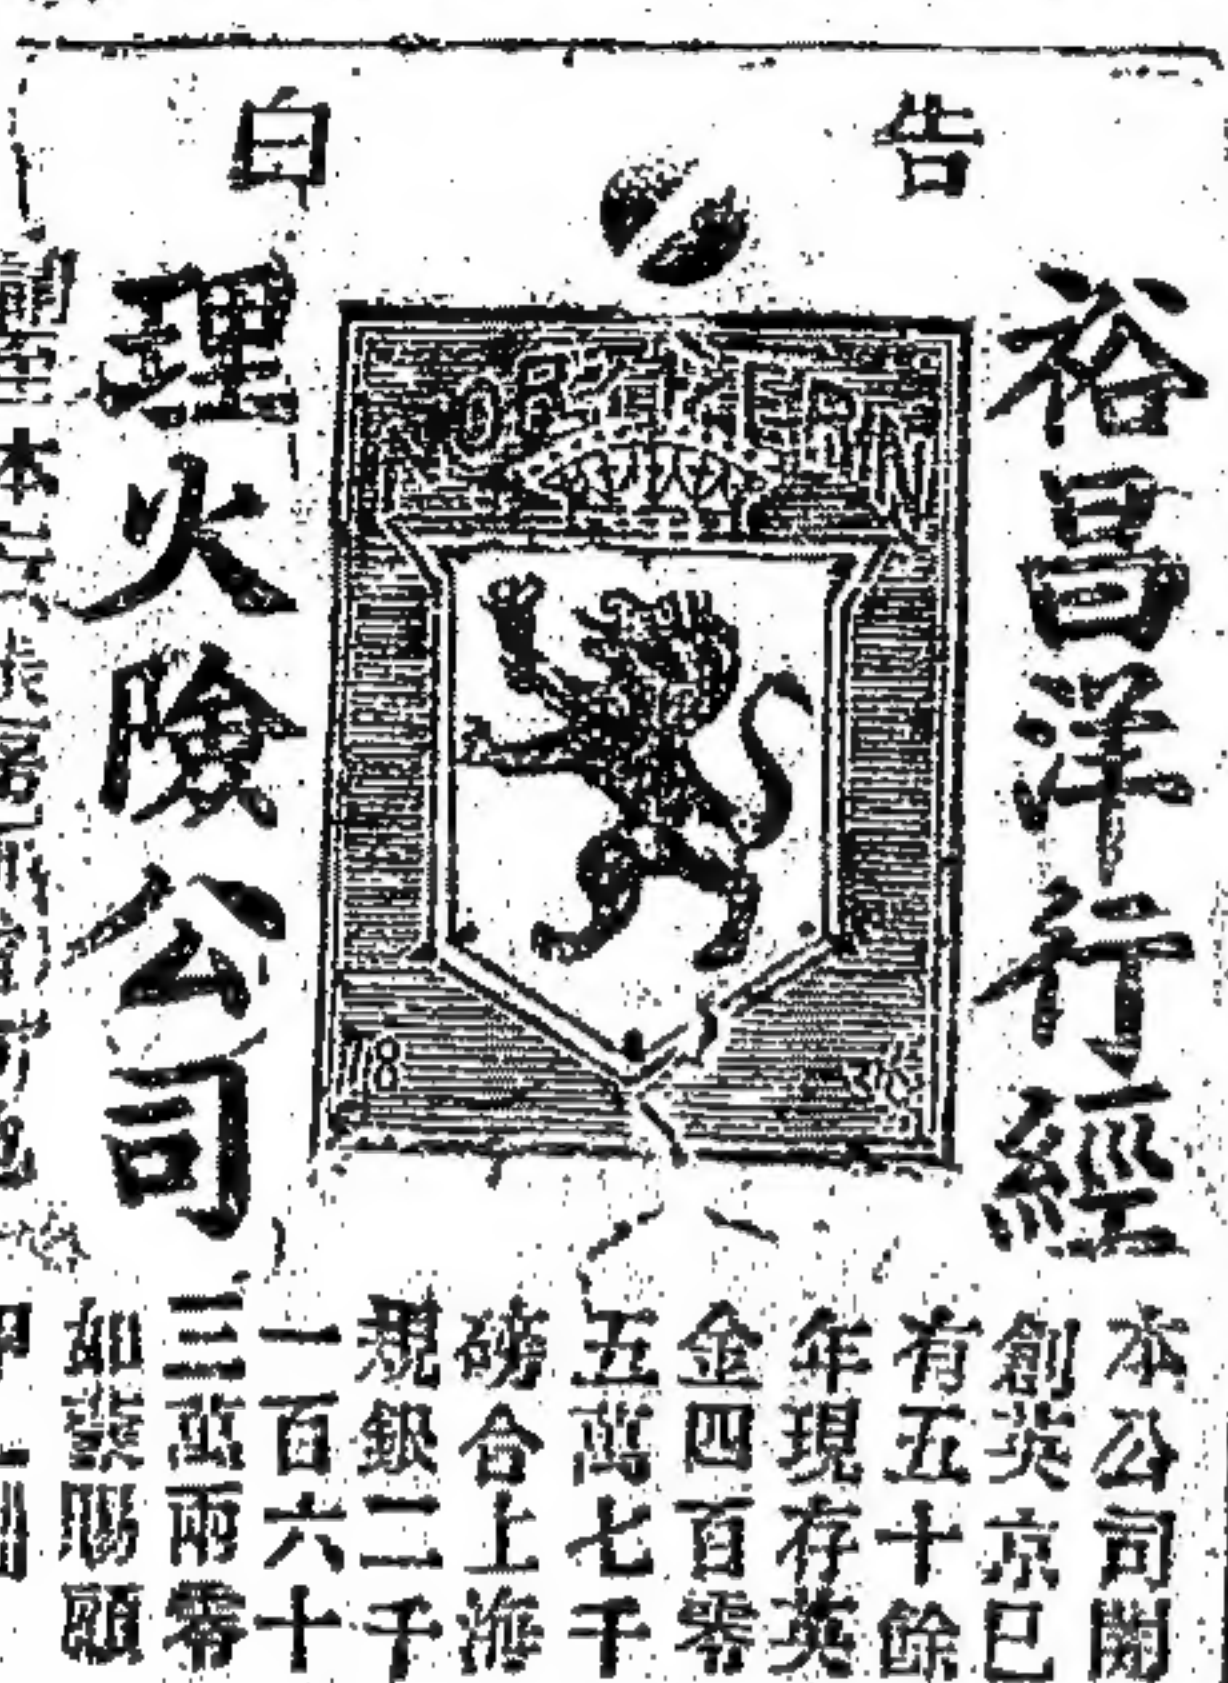 告白
裕昌洋行經
理火險公司
NORTHERN
18
本公司開
創英京已
有五十餘
年現存英
金四百零
五萬七千
磅合上海
規銀二千
一百六十
三萬兩零
如蒙賜顧